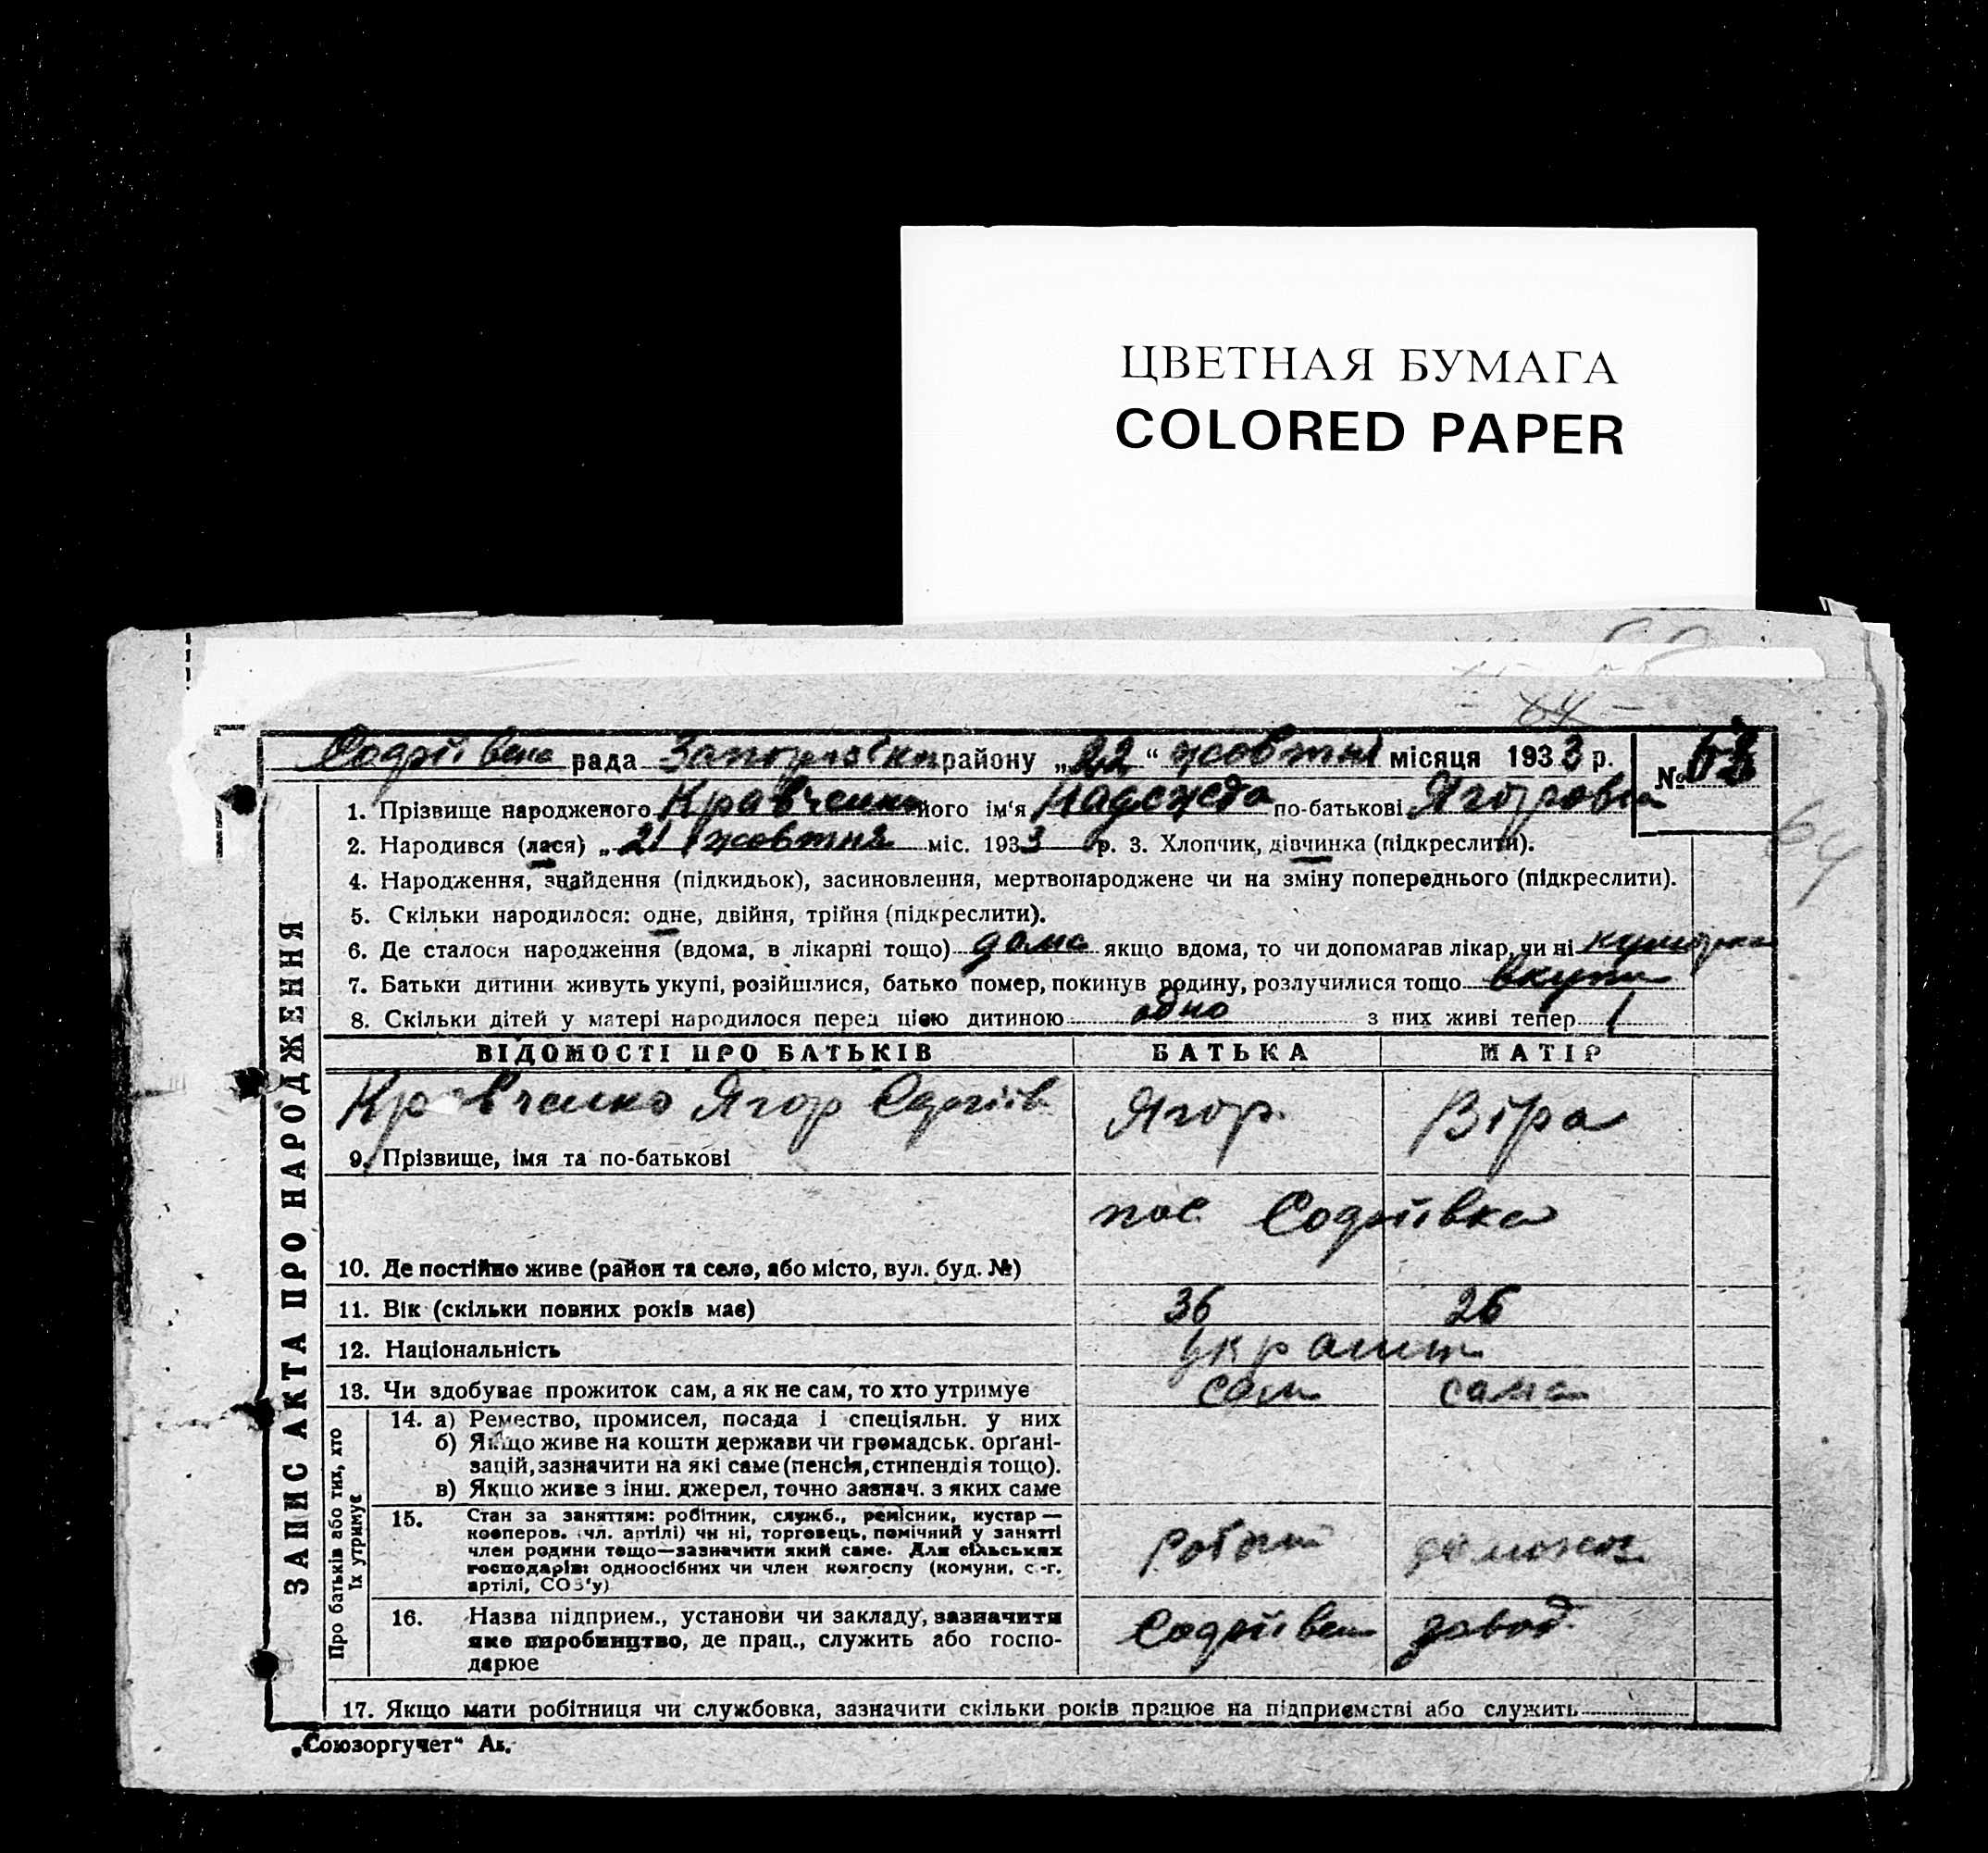 ЦВЕТНАЯ БУМАГА
COLORED PAPER
64
рада район у „22“ жовтня місяця 1933 р. №
1. Прізвище народженого Кравченко його ім'я Надежда по-батькові Ягоровна
64
2. Народився (лася) „21 жовтня міс. 1933 р. 3. Хлопчик, дівчинка (підкреслити).
4. Народження, знайдення (підкидьок), засиновлення, мертвонароджене чи на зміну попереднього (підкреслити).
5. Скільки народилося: одне, двійня, трійня (підкреслити).
6. Де сталося народження (вдома, в лікарні тощо) дома якщо вдома, то чи допомагав лікар, чи ні
7. Батьки дитини живуть укупі, розійшлися, батько помер, покинув родину, розлучилися тощо вкупи
8. Скільки дітей у матері народилося перед цією дитиною одно з них живі тепер 1
ЗАПИС АКТА ПРО НАРОДЖЕННЯ
ВІДОМОСТІ ПРО БАТЬКІВ БАТЬКА МАТІР
Кравченко Ягор Ягор Віра
9. Прізвище, імя та по-батькові
пос. Софіївка
10. Де постійно живе (район та село, або місто, вул. буд. №)
11. Вік (скільки повних років має) 36 26
12. Національність
13. Чи здобуває прожиток сам, а як не сам, то хто утримує сам сама
Про батьків або тих, хто їх утримує
14. а) Ремество, промисел, посада і спеціяльн. у них
б) Якщо живе на кошти держави чи громадськ. орґані-
зацій, зазначити на які саме (пенсія, стипендія тощо).
в) Якщо живе з інш. джерел, точно зазнач. з яких саме
15. Стан за заняттям: робітник, служб., ремісник, кустар —
кооперов. (чл. артілі) чи ні, торговець, помічний у занятті
член родини тощо—зазначити який саме. Для сільських
господарів: одноосібних чи член колгоспу (комуни, с.-г.
артілі, СОЗ'у)
16. Назва підприєм., установи чи закладу, зазначити завод.
яке виробництво, де прац., служить або госпо-
дарює
17. Якщо мати робітниця чи службовка, зазначити скільки років працює на підприємстві або служить
„Союзоргучет“ Ак.